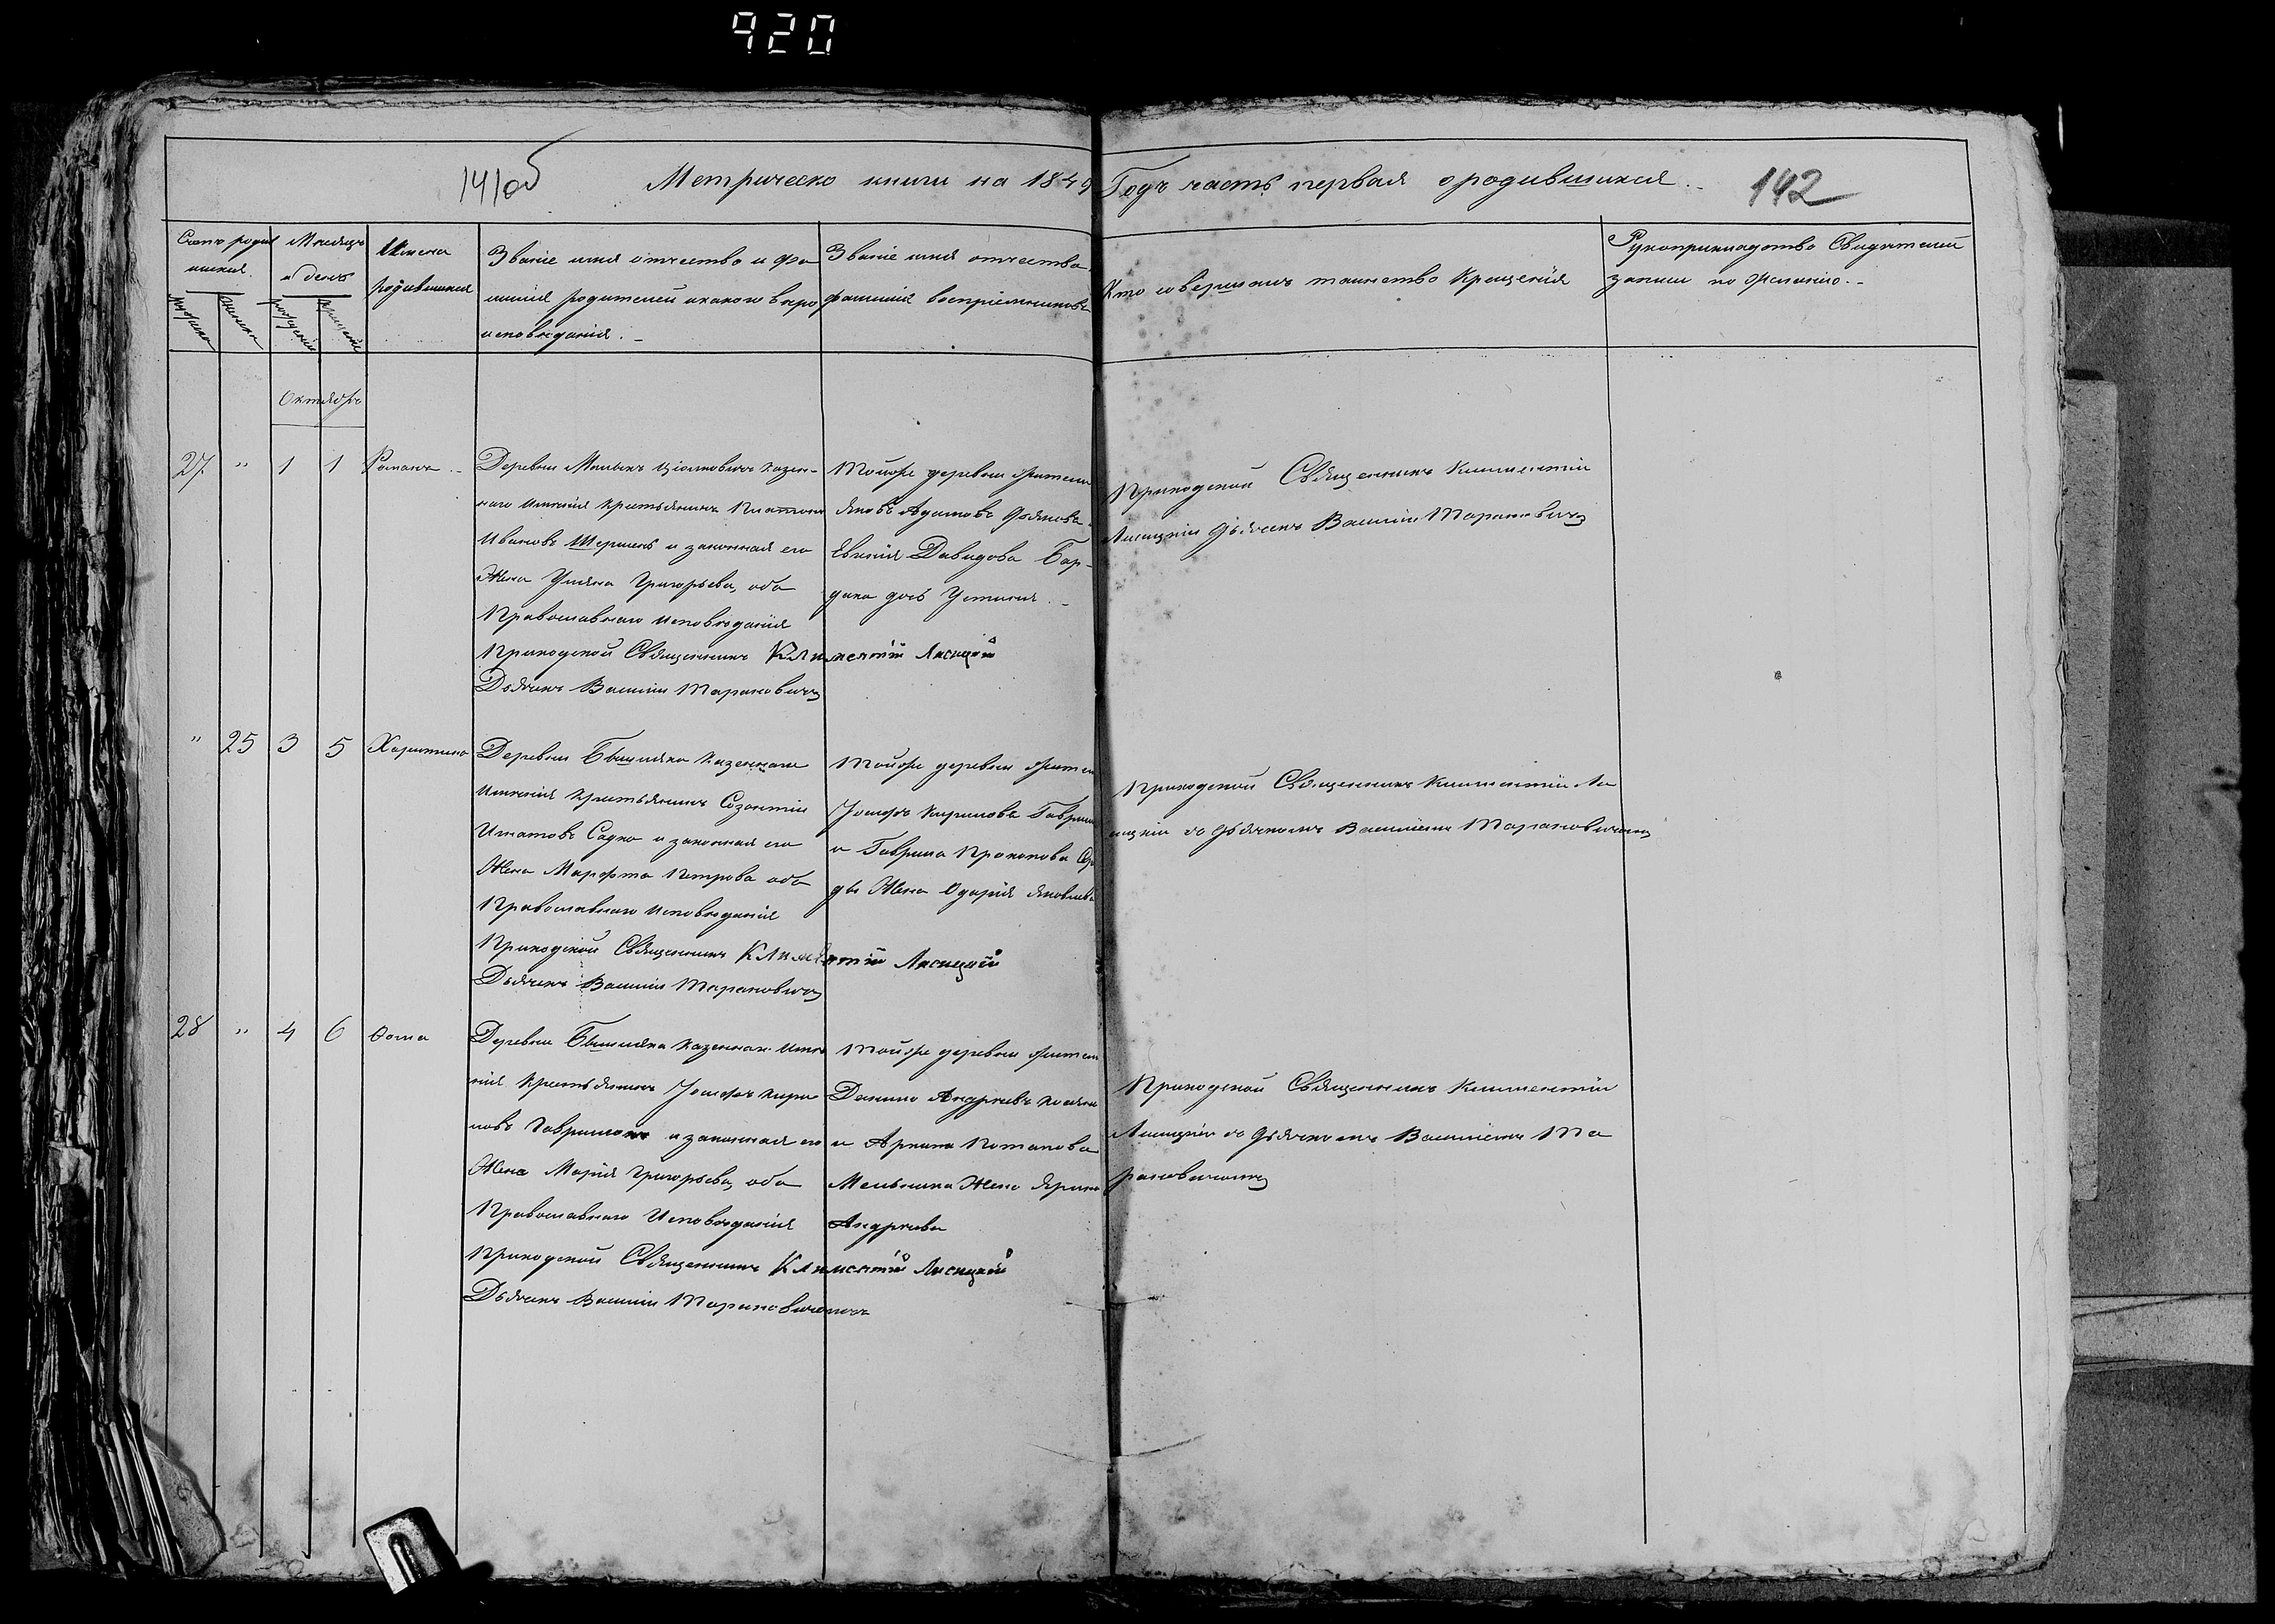 920
141об
Метрическо книги на 1849
Годъ часть первая о родившихся.
142
Счетъ родив
шихся.
мужеска
женска
Мѣсяцъ
и день
рожденія
крещенія
Имена
родившихся
Званіе имя отчество и фа
милія родителей и какого вѣро
исповѣданія.
Званіе имя отчество
фамилія воспріемниковъ
Кто совершалъ таинство Крещенія
Рукоприкладство Свидѣтелей
записи по желанію.
Октябрь
27 " 1 1 Романъ
Деревни казен-
наго имѣнія крестьянинъ Платонъ
Ивановъ Шершень и законная его
Жена Уліяна Григорьева, оба
Православнаго исповѣданія
Приходской Священникъ Климентій Лисицкій
Дьячекъ Василій Тарановичъ
Тойже деревни жители
Яковъ Адамовъ
Евгенія Давидова Бар-
дака дочь Устинія.
Приходской Священникъ Климентій
Лисицкій Дьячекъ Василій Тарановичъ
" 25 3 5 Харитина
Деревни казеннаго
имѣнія крестьянинъ Созонтій
Игнатовъ Садко и законная его
Жена Марфта Петрова оба
Православнаго исповѣданія
Приходской Священникъ Климентій Лисицкій
Дьячекъ Василій Тарановичъ
Тойже деревни жители
Іосифъ Кириловъ Гаврил
и Гаврила Прокопова
ды Жена Одарія Яковлева
Приходской Священникъ Климентій Ли
сицкій съ Дьячкомъ Василіемъ Тарановичемъ
28 " 4 6 Ѳома
Деревни казеннаго имѣ
нія крестьянинъ Іосифъ Кири
ловъ и законная его
Жена Марія Григорьева, оба
Православнаго Исповѣданія
Приходской Священникъ Климентій Лисицкій
Дьячекъ Василій Тарановичемъ
Тойже деревни жители
Данило Андреевъ
и Архипа Потапова
Мельника Жена Ярина
Андреева
Приходской Священникъ Климентій
Лисицкій съ Дьячкомъ Василіемъ Та
рановичемъ